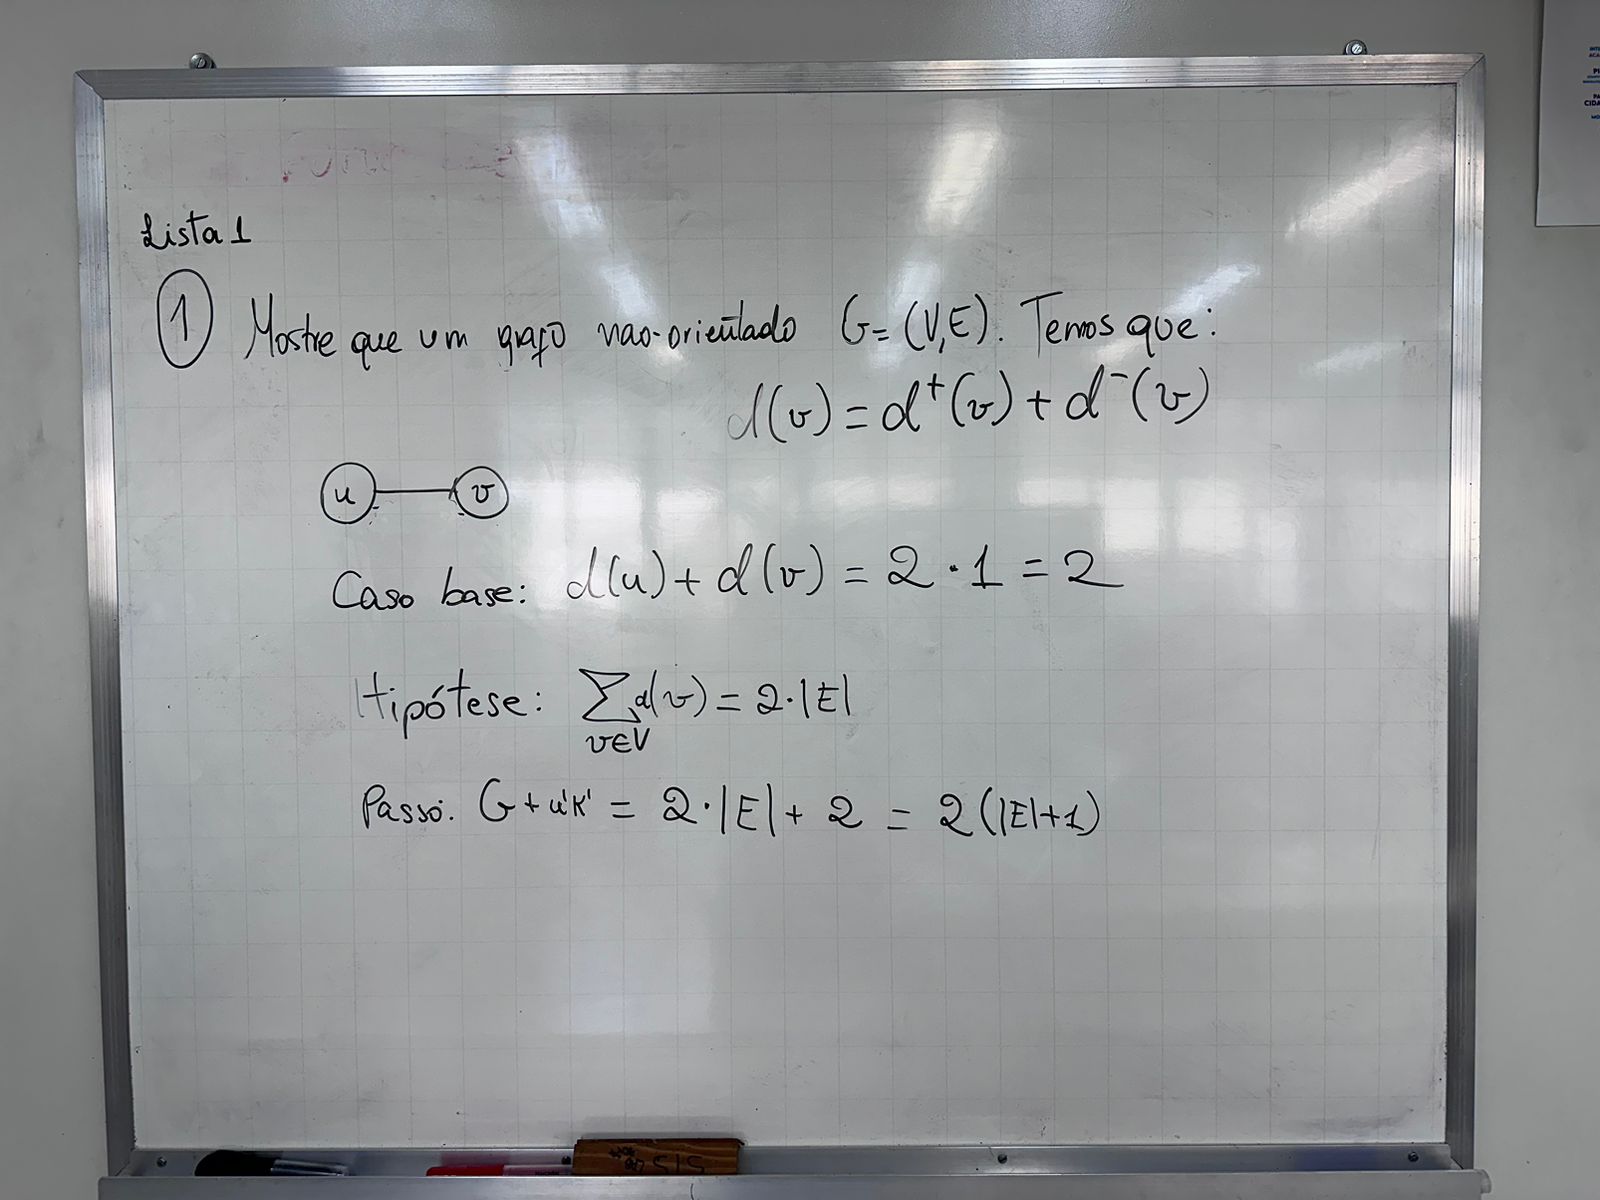 Lista 1
1 Mostre que um grafo nao-orientado G = (V,E). Temos que:
d(v) = d⁺(v) + d⁻(v)
u v
Caso base: d(u) + d(v) = 2 · 1 = 2
Hipótese: ∑ d(v) = 2·|E|
v∈V
Passo: G + u'k' = 2·|E| + 2 = 2(|E|+1)